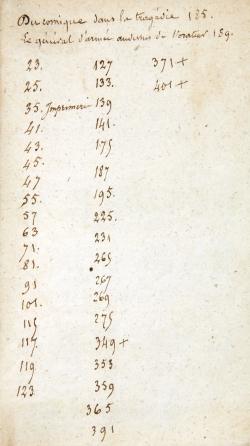 Du comique dans la tragédie 185.
Le général d'armée audessus de l'orateur 189.
23. 127 371 +
25. 133. 401 +
35. Imprimerie 139
41. 141.
43. 175
45. 187
47 195.
55. 225.
57 231
63 265
71. 267
81. 269
91 275
101. 349 +
115 353
117 359
119 365
123 391